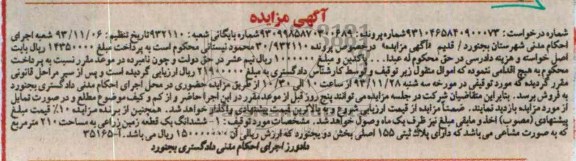 آگهی مزایده
شماره درخواست: ۹۳۱۰۴۶۵۸۴۰۹۰۰۰۷۳ شماره پرونده: ۹۳۰۹۹۸۵۸۷۰۳۰۰۶۸۹ شماره بایگانی شعبه: ۹۳۲۱۱۰ تاریخ تنظیم: ۹۳/۱۱/۰۶ شعبه اجرای
احکام مدنی شهرستان بجنورد / قدیم «آگهی مزایده» درخصوص پرونده ۳۰/۹۳۲۱۱۰ محمود نیستانی محکوم است به پرداخت مبلغ ۱۴۳۵۰۰۰۰ ریال بابت
اصل خواسته و هزینه دادرسی در حق محکوم له عبدا... پاکدین و مبلغ ۱۱۰۰۰۰۰ ریال نیم عشر در حق دولت و چون نامبرده در موعد مقرر نسبت به پرداخت
محکوم به هیچ اقدامی ننموده که اموال منقول زیر توقیف و توسط کارشناس دادگستری به مبلغ ۲۱۹۰۰۰۰۰۰ ریال ارزیابی گردیده است و پس از سیر مراحل قانونی
مقرر گردیده که مورد توقیفی در مورخه ۹۳/۱۱/۲۸ از ساعت ۱۰ الی ۱۰/۳۰ از طریق مزایده حضوری در محل اجرای احکام مدنی دادگستری بجنورد
به فروش برسد. بنابراین متقاضیان شرکت در جلسه مزایده می توانند پنج روز قبل از موعد مقرر در این اجرا حاضر و از کم و کیف موضوع مطلع و در صورت تمایل
از مورد مزایده بازدید نمایند. ضمنا مزایده از قیمت ارزیابی شروع و به بالاترین قیمت پیشنهادی واگذار خواهد شد. همچنین از برنده مزایده ۱۰٪ مبلغ
پیشنهادی (مصوب) اخذ و مابقی مبلغ نیز ظرف یک ماه وصول خواهد شد. مشخصات مورد توقیف: ۱- ششدانگ یک قطعه زمین زراعی به مساحت ۲۱۰ مترمربع
که به صورت مشاعی می باشد که دارای پلاک ثبتی ۱۵۵ اصلی بخش دو بجنورد که ارزش ریالی آن ۱۵۰۰۰۰۰۰۰ ریال می باشد. ۳۵۱۶۵-۱
دادورز اجرای احکام مدنی دادگستری بجنورد